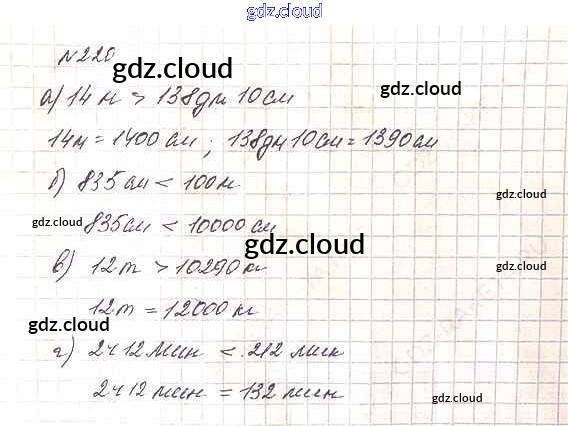 gdz.cloud
№220
gdz.cloud
а) 14 м > 138дм 10см
gdz.cloud
14м = 1400 см ; 138дм 10см = 1390см
б) 835 см < 100м
gdz.cloud
gdz.cloud
835см < 10000 см
gdz.cloud
в) 12т > 10290 кг
gdz.cloud
12т = 12000 кг
gdz.cloud
г) 2ч 12 мин < 212 мин
2ч 12 мин = 132 мин
gdz.cloud